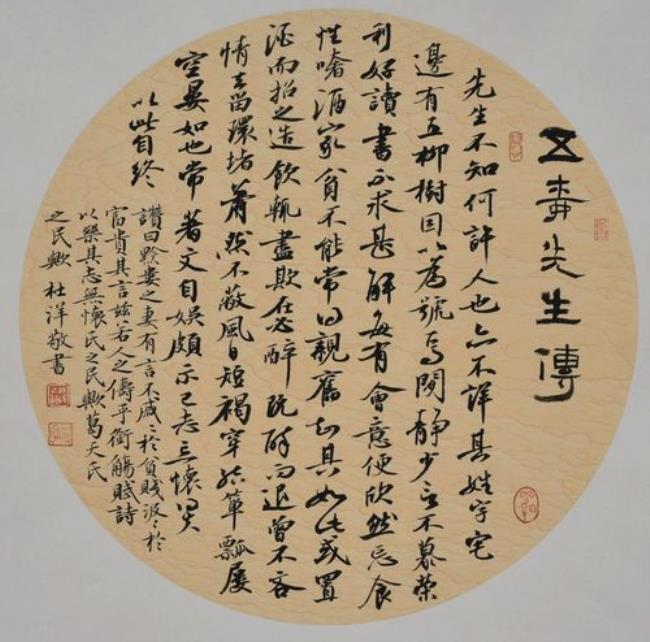 五 先生傳
先生不知何許人也亦不詳其姓字宅
邊有五柳樹因以為號焉閑靜少言不慕榮
利好讀書不求甚解每有會意便欣然忘食
性嗜酒家貧不能常得親舊知其如此或置
酒而招之造飲輒盡期在必醉既醉而退曾不吝
情去留環堵蕭然不蔽風日短褐穿結簞瓢屢
空晏如也常著文自娛頗示己志忘懷得失
以此自終
讚曰黔婁之妻有言不戚〻於貧賤汲〻於
富貴其言茲若人之儔乎銜觴賦詩
以樂其志無懷氏之民歟葛天氏
之民歟 杜洋敬書